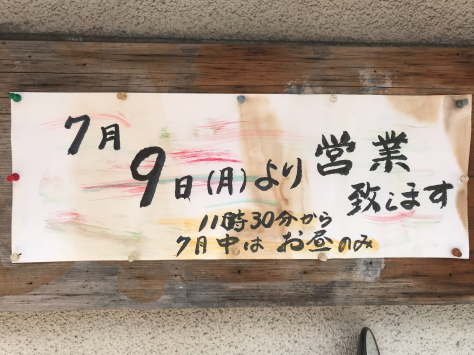 7月
9日(月)より営業
致します
11時30分から
7月中は お昼のみ